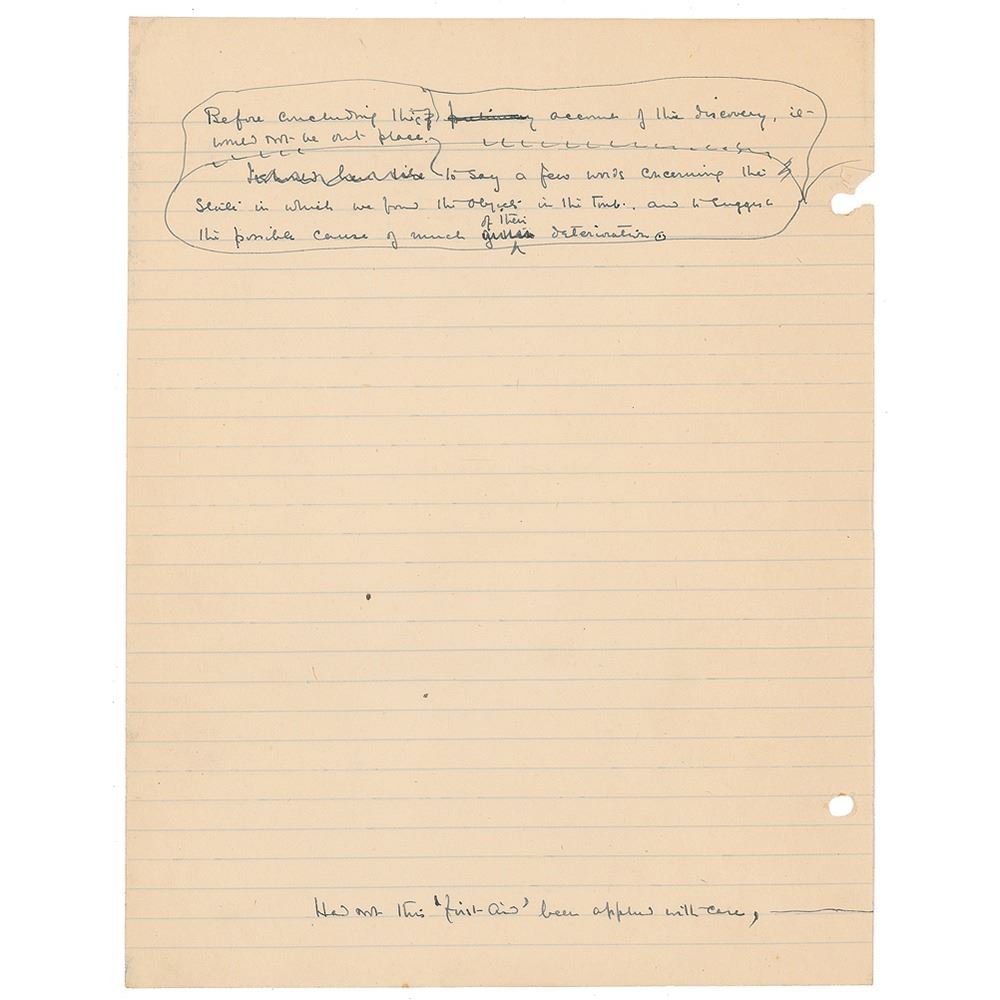 Before concluding this account of the discovery, it
would not be out place
to say a few words concerning the
state in which we found the objects in the Tomb, and to suggest
of their
the possible cause of much deterioration.
Had not this 'first-aid' been applied with care,